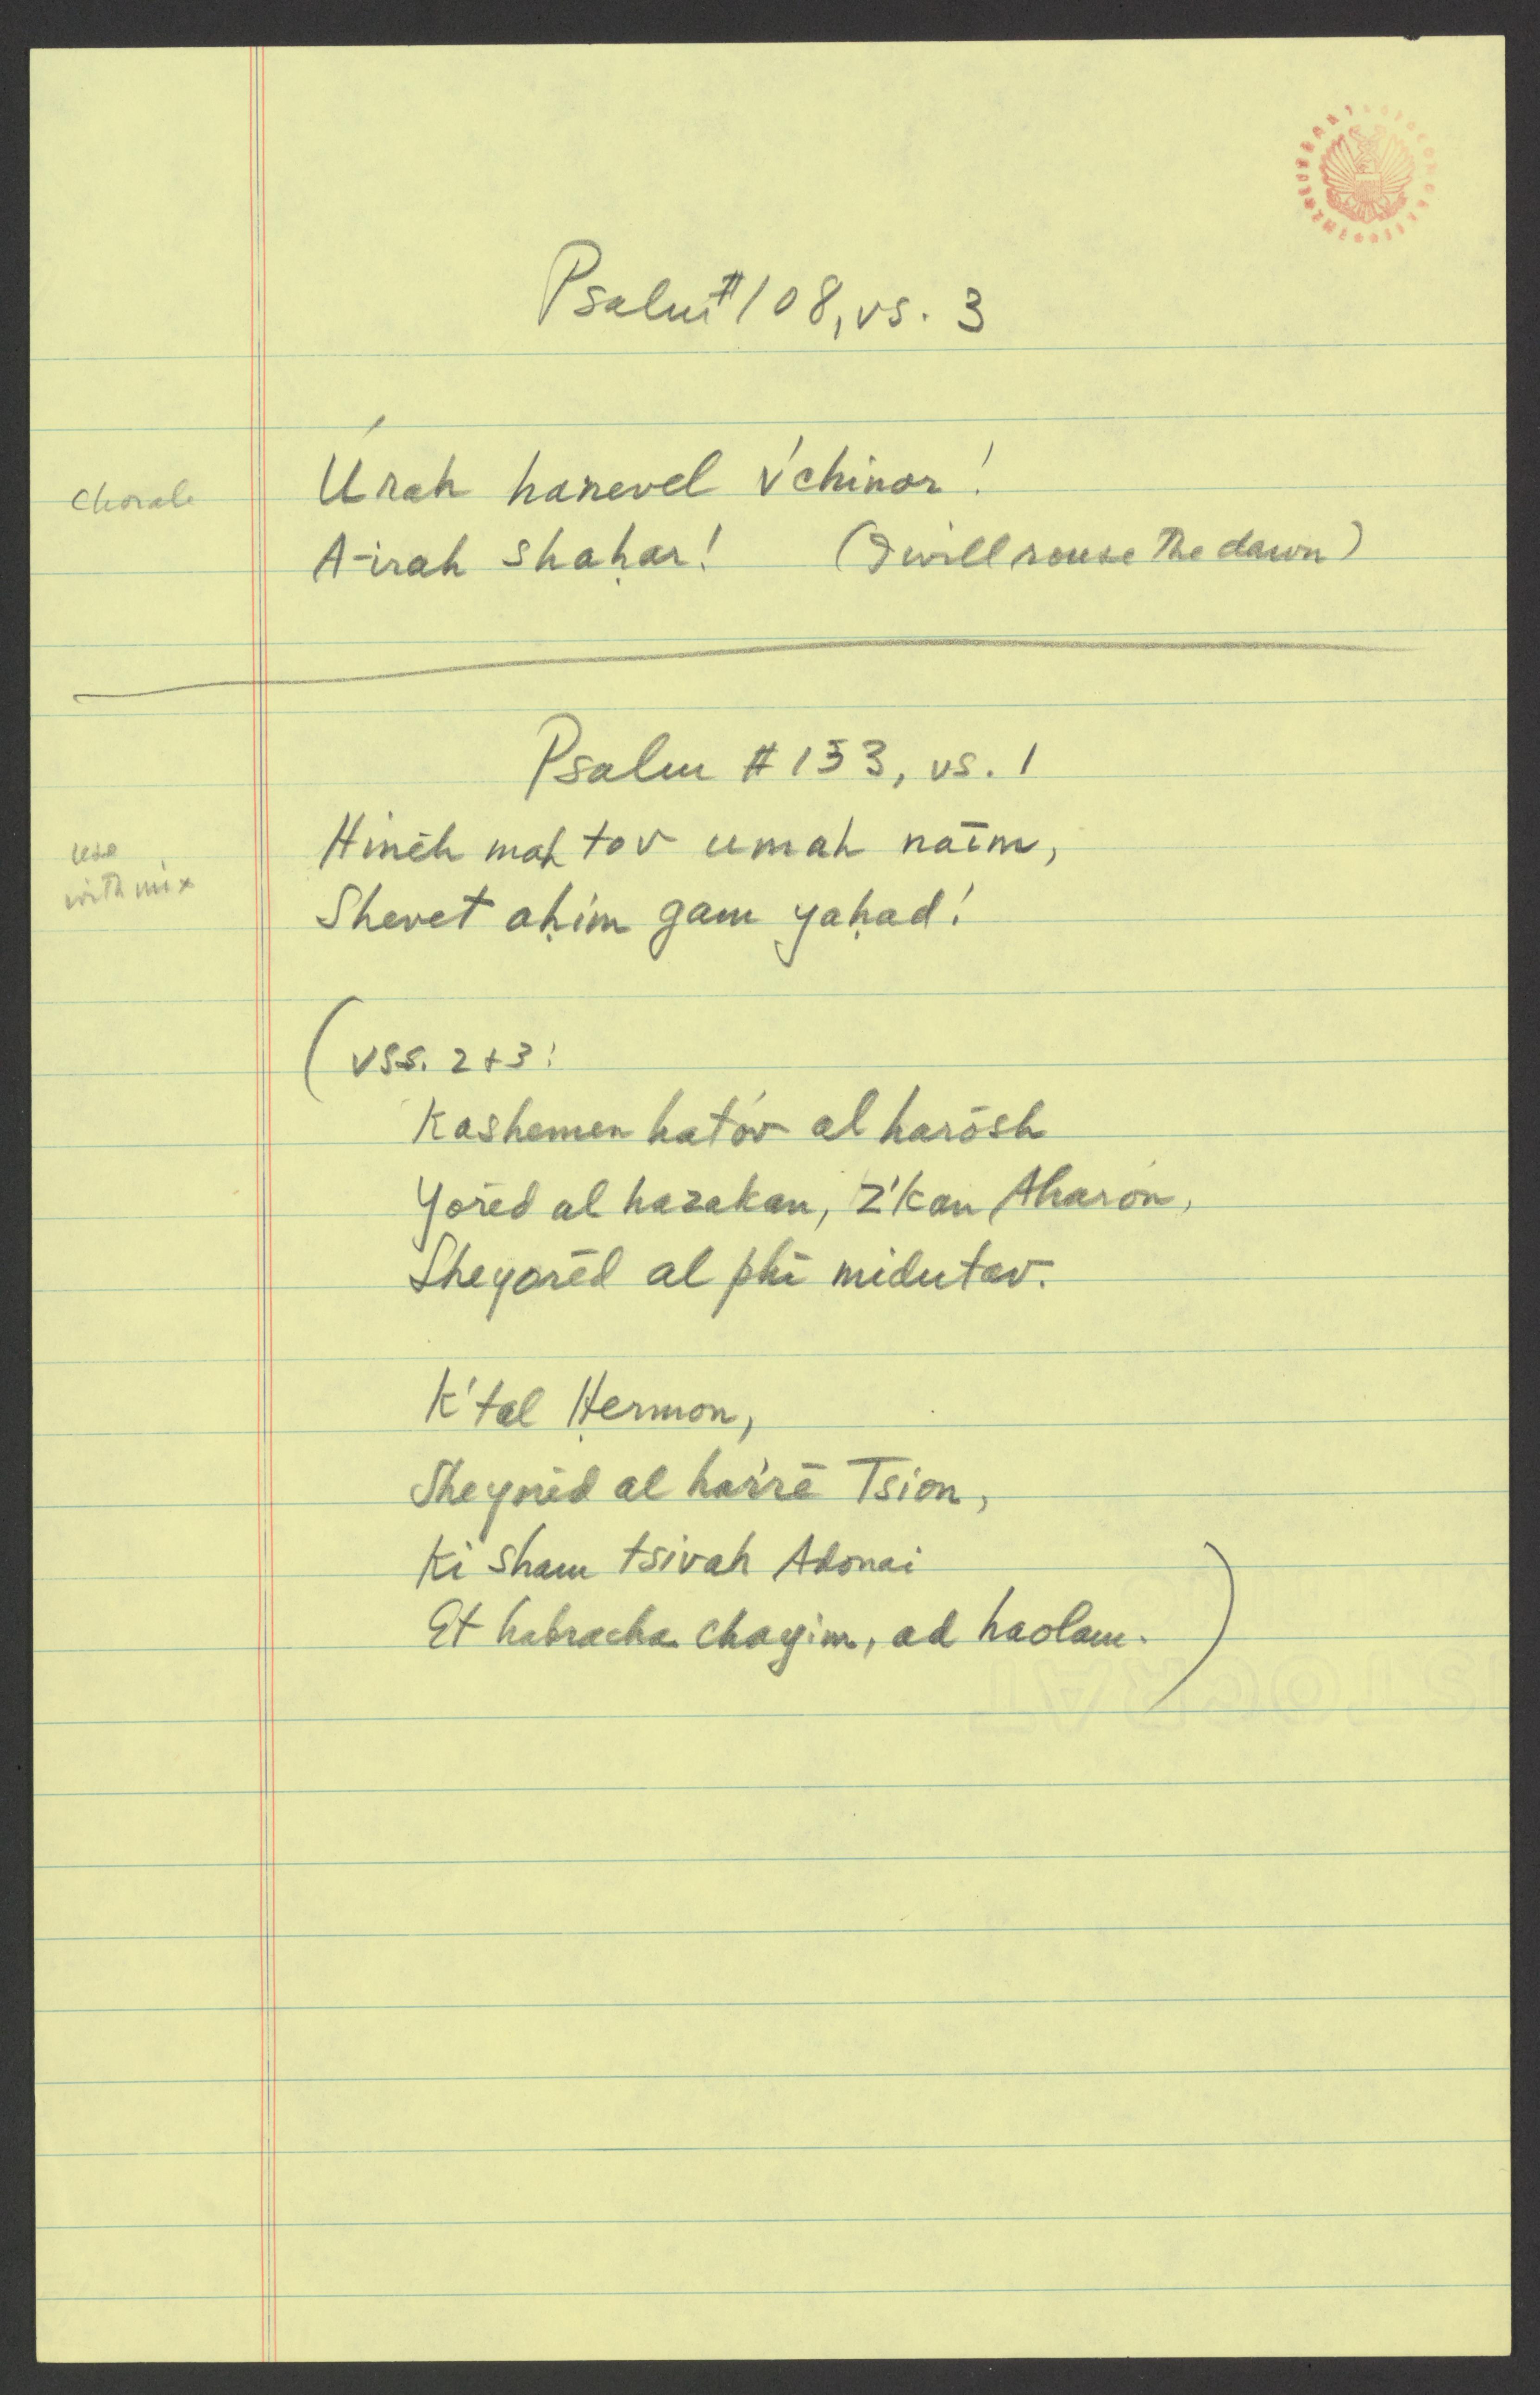 Psalm #108, vs. 3
Chorale
Úrah hanevel v'chinor!
A-irah shaḥar! (I will rouse the dawn)
Psalm #133, vs. 1
use
with mix
Hinēh mah tov umah naīm,
Shevet aḥim gam yaḥad!
(vss. 2+3:
Kashemen hatóv al harōsh
Yorēd al hazakan, z'kan Aharón,
Sheyorēd al phī midutav.
K'tal Ḥermon,
Sheyorēd al har'rē Tsion,
Ki sham tsivah Adonai
Et habracha chayim, ad haolam.)